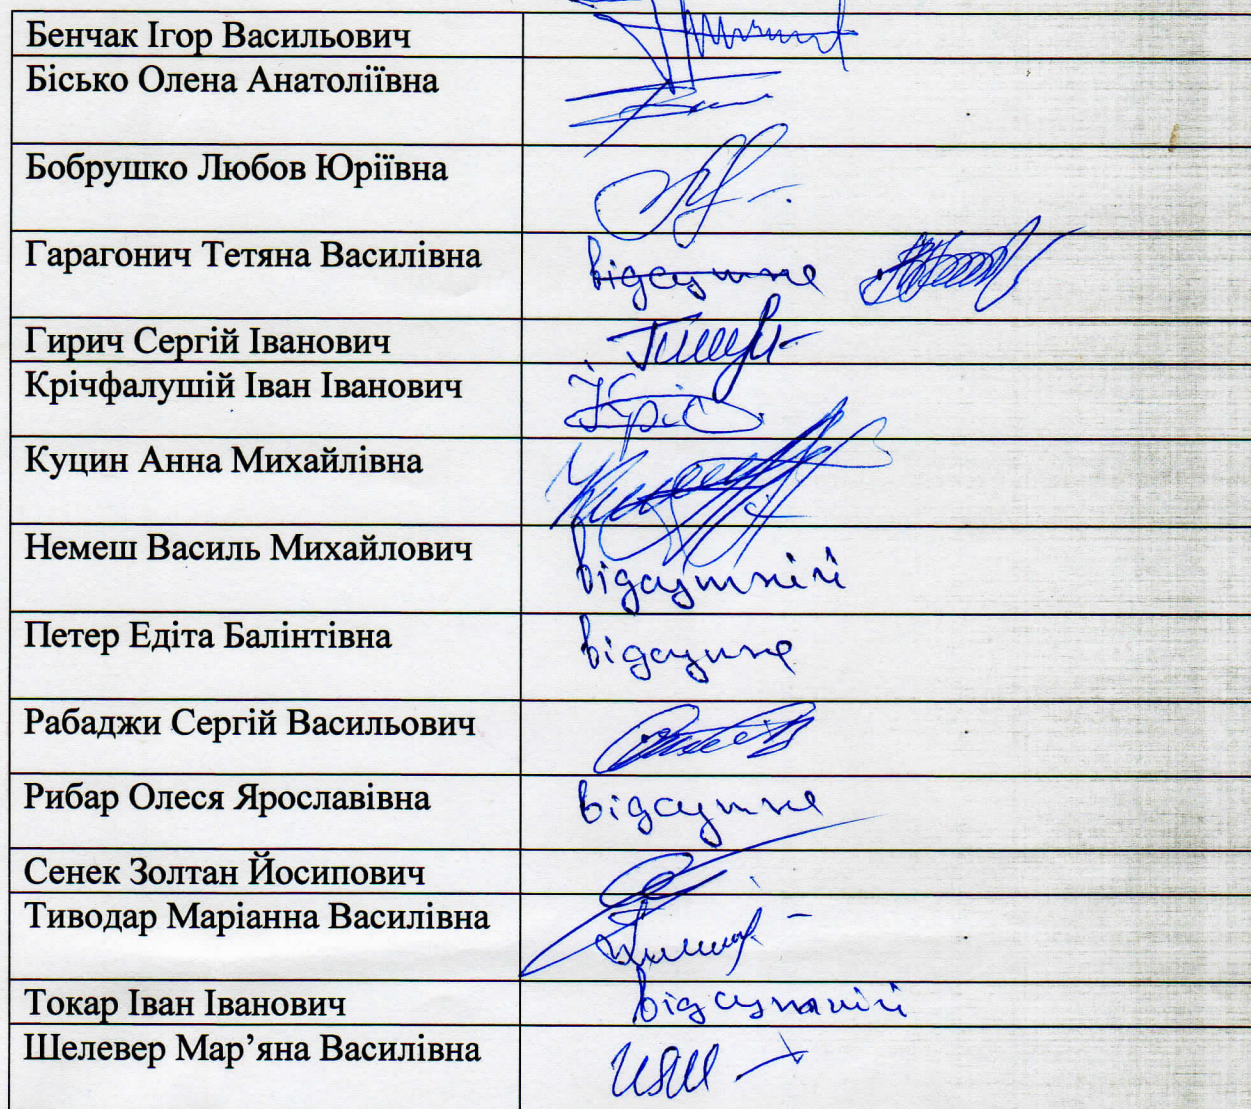 Бенчак Ігор Васильович
Бісько Олена Анатоліївна
Бобрушко Любов Юріївна
Гарагонич Тетяна Василівна відсутня
Гирич Сергій Іванович
Крічфалушій Іван Іванович
Куцин Анна Михайлівна
Немеш Василь Михайлович відсутній
Петер Едіта Балінтівна відсутня
Рабаджи Сергій Васильович
Рибар Олеся Ярославівна відсутня
Сенек Золтан Йосипович
Тиводар Маріанна Василівна
Токар Іван Іванович відсутній
Шелевер Мар’яна Василівна